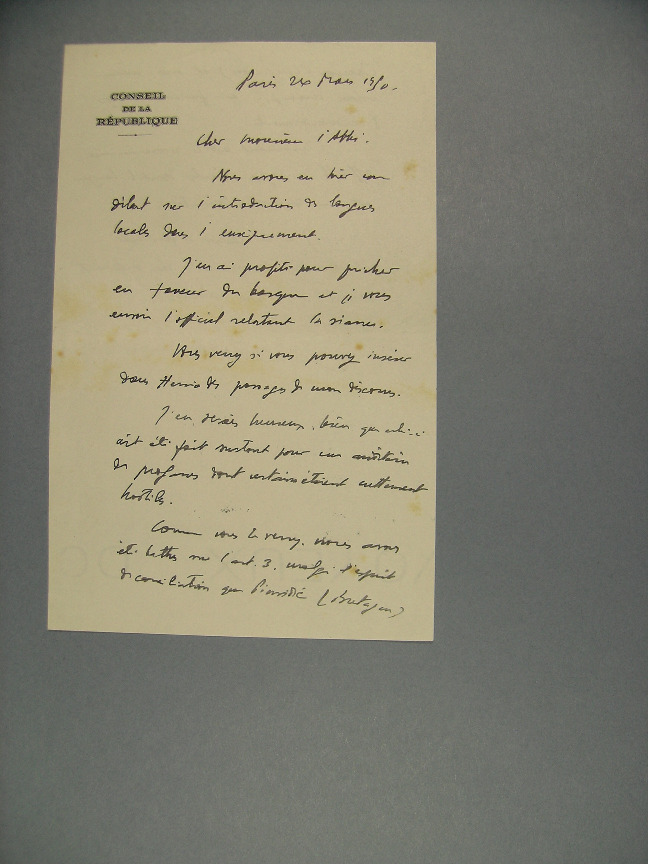 CONSEIL
DE LA
RÉPUBLIQUE
Paris 24 Mars 1950.
Cher Monsieur l'Abbé.
Nous avons eu hier un
débat sur l'introduction des langues
locales dans l'enseignement.
J'en ai profité pour prêcher
en faveur du basque et je vous
envoie l'officiel relatant la séance.
Vous verrez si vous pouvez insérer
dans Herria des passages de mon discours.
J'en serais heureux, bien que celui-ci
ait été fait surtout pour un auditoire
de profanes dont certains étaient nettement
hostiles.
Comme vous le verrez, nous avons
été battus sur l'art. 3. malgré l'esprit
de conciliation que (Bretagne)